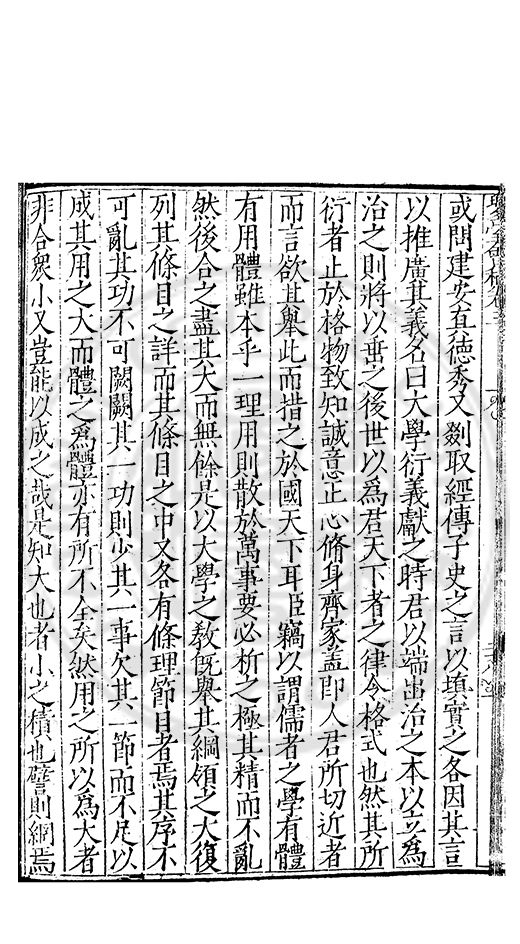 或問建安真德秀又剟取經傳子史之言以塡實之各因其言
以推廣其義名曰大學衍義獻之時君以端出治之本以立爲
治之則將以垂之後世以爲君天下者之律令格式也然其所
衍者止於格物致知誠意正心脩身齊家蓋卽人君所切近者
而言欲其舉此而措之於國天下耳臣竊以謂儒者之學有體
有用體雖本乎一理用則散於萬事要必析之極其精而不亂
然後合之盡其大而無餘是以大學之敎旣舉其綱領之大復
列其條目之詳而其條目之中又各有條理節目者焉其序不
可亂其功不可闕闕其一功則少其一事欠其一節而不足以
成其用之大而體之爲體亦有所不全矣然用之所以爲大者
非合衆小又豈能以成之哉是知大也者小之積也譬則網焉